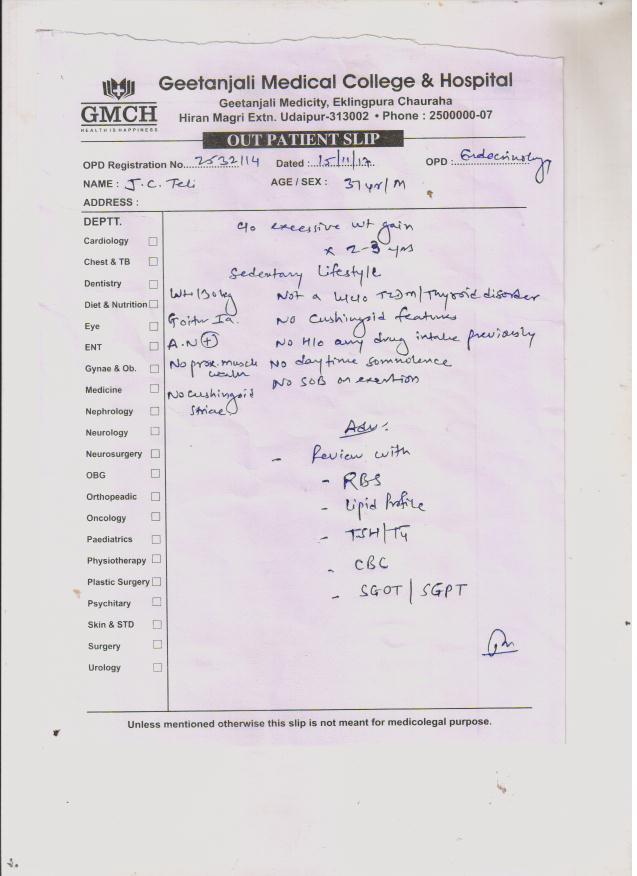 Geetanjali Medical College & Hospital
GMCH
HEALTH IS HAPPINESS
Geetanjali Medicity, Eklingpura Chauraha
Hiran Magri Extn. Udaipur-313002 • Phone : 2500000-07
OUT PATIENT SLIP
OPD Registration No. 2532114 Dated : 15/11/17 OPD : Endocrinology
NAME : J.C. Teli AGE / SEX : 37 yr/M
ADDRESS :
DEPTT.
Cardiology
Chest & TB
Dentistry
Diet & Nutrition
Eye
ENT
Gynae & Ob.
Medicine
Nephrology
Neurology
Neurosurgery
OBG
Orthopeadic
Oncology
Paediatrics
Physiotherapy
Plastic Surgery
Psychitary
Skin & STD
Surgery
Urology
c/o excessive wt gain
x 2-3 yrs
Sedentary Lifestyle
Wt 130kg Not a k/c/o T2DM/Thyroid disorder
Goitre Ia No Cushingoid features
A.N + No H/o any drug intake previously
No prox. muscle No daytime somnolence
No SOB on exertion
No Cushingoid
Striae
Adv:
- Review with
- RBS
- Lipid Profile
- TSH/T4
- CBC
- SGOT / SGPT
Unless mentioned otherwise this slip is not meant for medicolegal purpose.